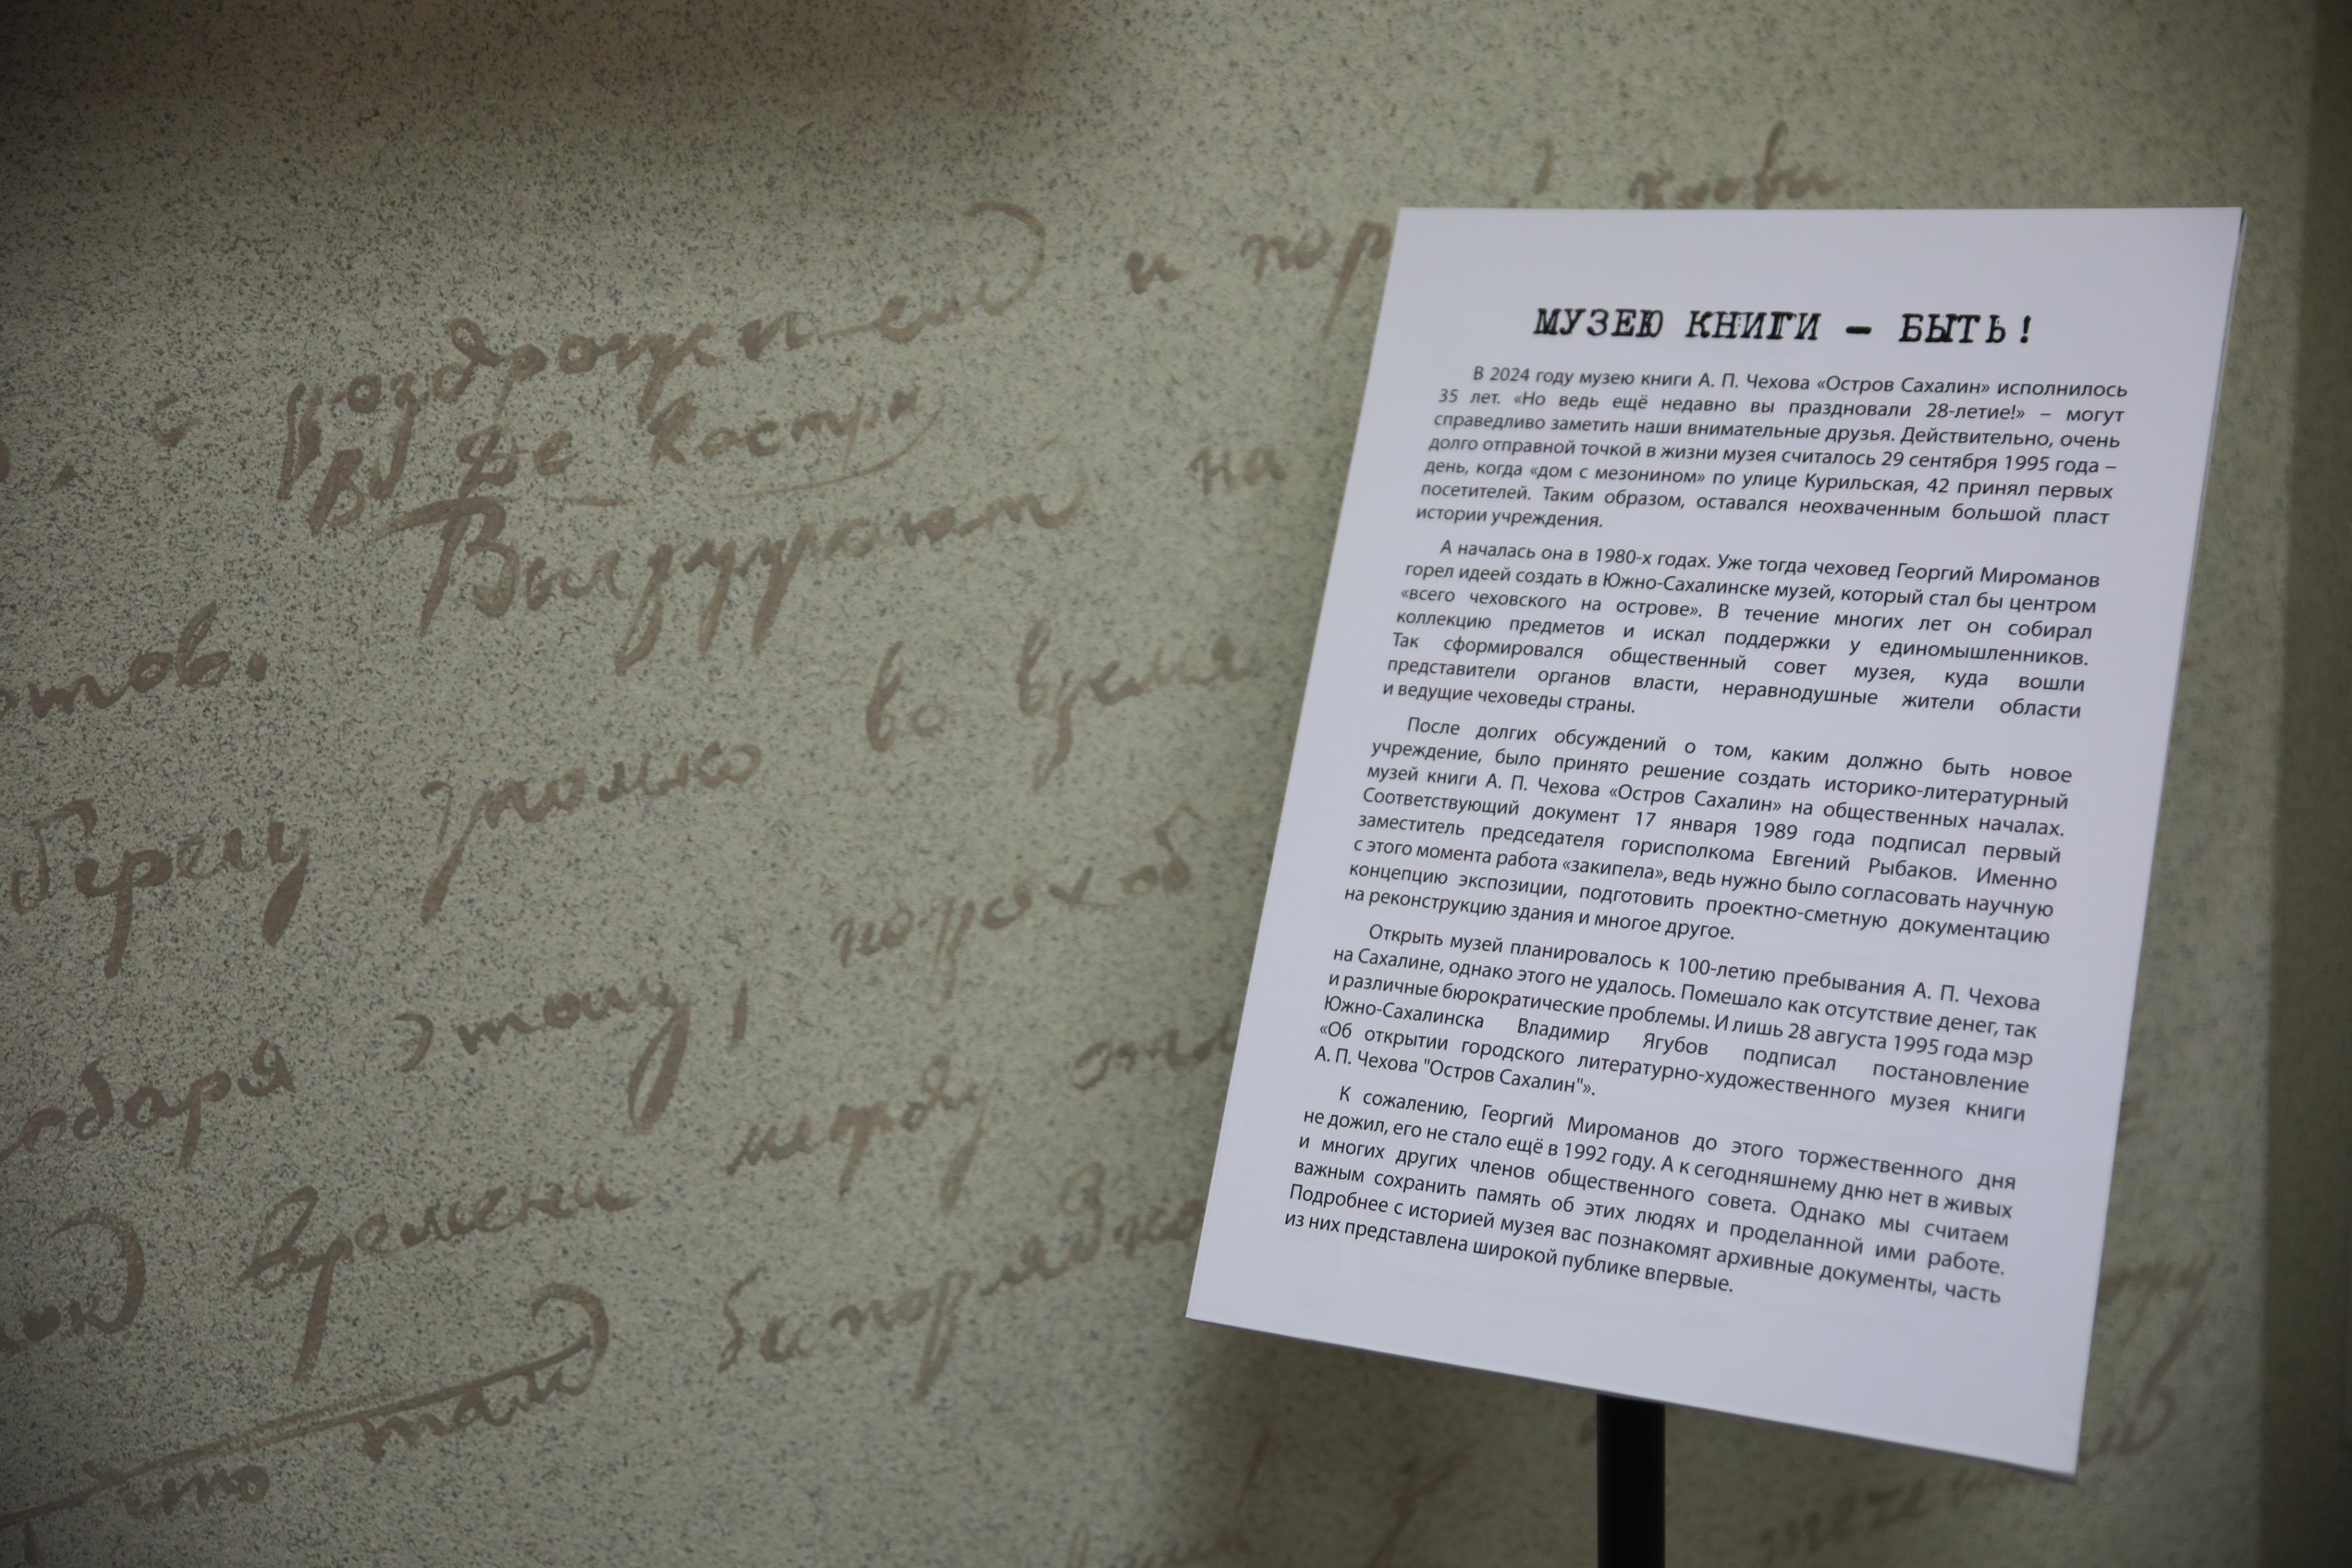 и
с раздражением
В Де Кастри
Выгружают на
во время
берегу только
пороховой
этому,
между
времени
беспорядко
там
что
МУЗЕЮ КНИГИ – БЫТЬ!
В 2024 году музею книги А. П. Чехова «Остров Сахалин» исполнилось
35 лет. «Но ведь ещё недавно вы праздновали 28-летие!» – могут
справедливо заметить наши внимательные друзья. Действительно, очень
долго отправной точкой в жизни музея считалось 29 сентября 1995 года –
день, когда «дом с мезонином» по улице Курильская, 42 принял первых
посетителей. Таким образом, оставался неохваченным большой пласт
истории учреждения.
А началась она в 1980-х годах. Уже тогда чеховед Георгий Мироманов
горел идеей создать в Южно-Сахалинске музей, который стал бы центром
«всего чеховского на острове». В течение многих лет он собирал
коллекцию предметов и искал поддержки у единомышленников.
Так сформировался общественный совет музея, куда вошли
представители органов власти, неравнодушные жители области
и ведущие чеховеды страны.
После долгих обсуждений о том, каким должно быть новое
учреждение, было принято решение создать историко-литературный
музей книги А. П. Чехова «Остров Сахалин» на общественных началах.
Соответствующий документ 17 января 1989 года подписал первый
заместитель председателя горисполкома Евгений Рыбаков. Именно
с этого момента работа «закипела», ведь нужно было согласовать научную
концепцию экспозиции, подготовить проектно-сметную документацию
на реконструкцию здания и многое другое.
Открыть музей планировалось к 100-летию пребывания А. П. Чехова
на Сахалине, однако этого не удалось. Помешало как отсутствие денег, так
и различные бюрократические проблемы. И лишь 28 августа 1995 года мэр
Южно-Сахалинска Владимир Ягубов подписал постановление
«Об открытии городского литературно-художественного музея книги
А. П. Чехова "Остров Сахалин"».
К сожалению, Георгий Мироманов до этого торжественного дня
не дожил, его не стало ещё в 1992 году. А к сегодняшнему дню нет в живых
и многих других членов общественного совета. Однако мы считаем
важным сохранить память об этих людях и проделанной ими работе.
Подробнее с историей музея вас познакомят архивные документы, часть
из них представлена широкой публике впервые.